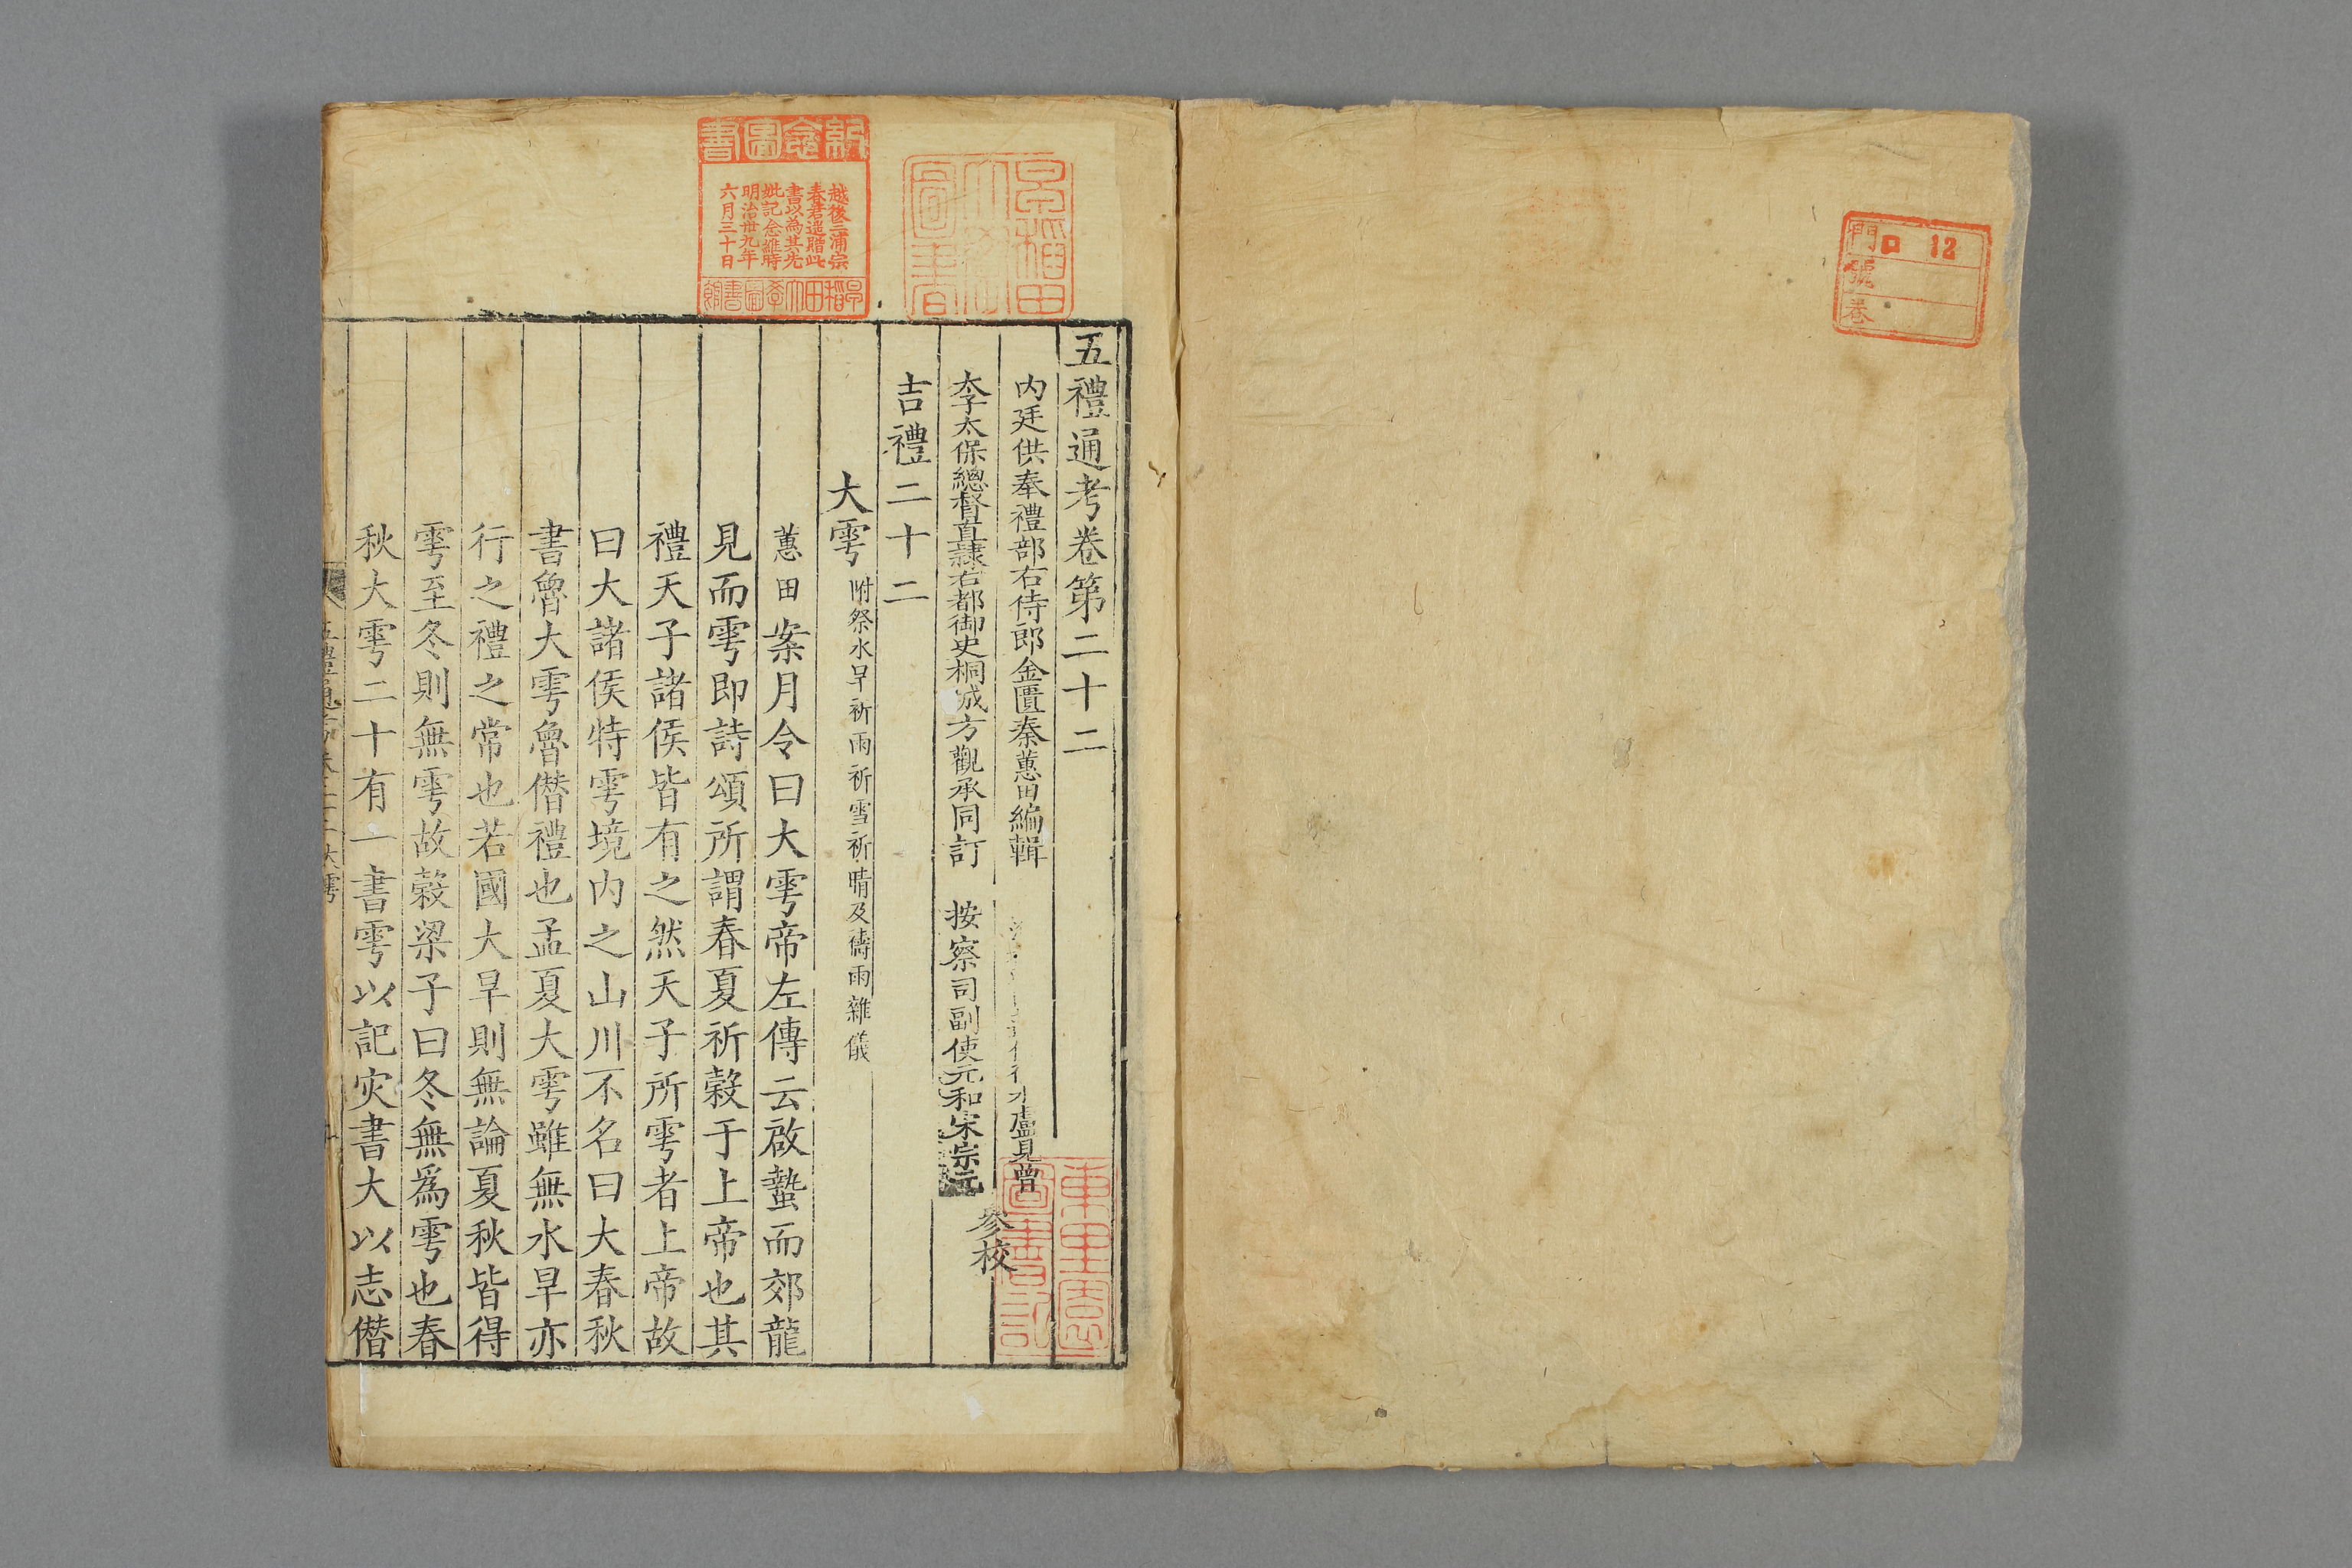 門 口 12
號
卷
五禮通考卷第二十二
内廷供奉禮部右侍郎金匱秦蕙田編輯
盧見曾
太子太保總督直隷右都御史桐城方觀承同訂
按察司副使元和宋宗元
參校
吉禮二十二
大雩附祭水旱祈雨祈雪祈晴及禱雨雜儀
蕙田案月令曰大雩帝左傳云啟蟄而郊龍
見而雩即詩頌所謂春夏祈穀于上帝也其
禮天子諸侯皆有之然天子所雩者上帝故
曰大諸侯特雩境内之山川不名曰大春秋
書魯大雩魯僭禮也孟夏大雩雖無水旱亦
行之禮之常也若國大旱則無論夏秋皆得
雩至冬則無雩故穀梁子曰冬無為雩也春
秋大雩二十有一書雩以記灾書大以志僭
紀念圖書
越後三浦宗
春君遥贈此
書以為其先
妣記念維時
明治卅九年
六月三十日
早稲田大學圖書館
早稲田
大學
圖書
東里園
圖書記